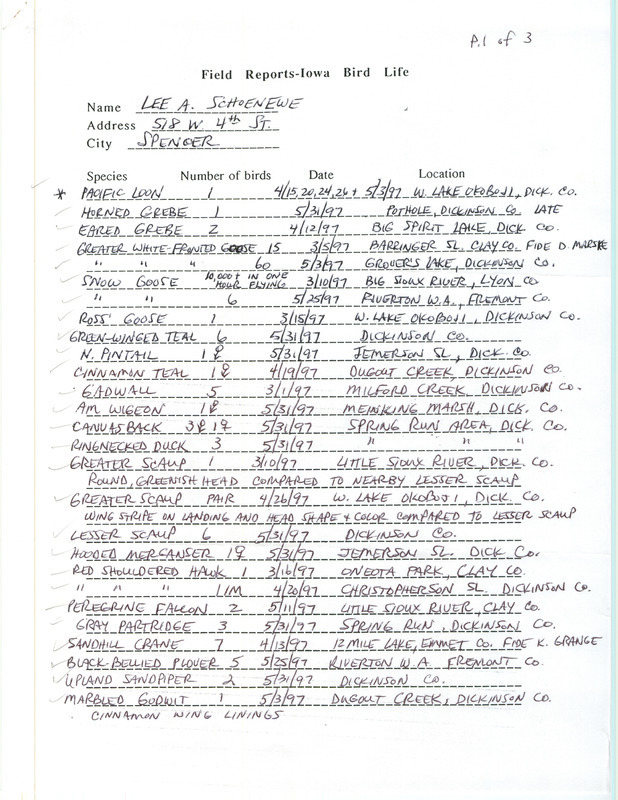 P.1 of 3
Field Reports-Iowa Bird Life
Name LEE A. SCHOENEWE
Address 518 W. 4th ST.
City SPENCER
Species Number of birds Date Location
* PACIFIC LOON 1 4/15,20,24,26 + 5/3/97 W. LAKE OKOBOJI, DICK. CO.
HORNED GREBE 1 5/31/97 POTHOLE, DICKINSON CO. LATE
EARED GREBE 2 4/12/97 BIG SPIRIT LAKE, DICK. CO.
GREATER WHITE-FRONTED GOOSE 15 3/5/97 BARRINGER SL. CLAY CO. FIDE D. MARSKE
" " " 60 5/3/97 GROVER'S LAKE, DICKINSON CO.
SNOW GOOSE 10,000+ IN ONE HOUR FLYING 3/10/97 BIG SIOUX RIVER, LYON CO.
" " 6 5/25/97 RIVERTON W.A., FREMONT CO.
ROSS' GOOSE 1 3/15/97 W. LAKE OKOBOJI, DICKINSON CO.
GREEN-WINGED TEAL 6 5/31/97 DICKINSON CO.
N. PINTAIL 1♀ 5/31/97 JEMERSON SL., DICK. CO.
CINNAMON TEAL 1 4/19/97 DUGOUT CREEK, DICKINSON CO.
GADWALL 5 3/1/97 MILFORD CREEK, DICKINSON CO.
AM. WIGEON 1 5/31/97 MEINKING MARSH, DICK. CO.
CANVASBACK 3 1♀ 5/31/97 SPRING RUN AREA, DICK. CO.
RINGNECKED DUCK 3 5/31/97 " " "
GREATER SCAUP 1 3/10/97 LITTLE SIOUX RIVER, DICK. CO.
ROUND, GREENISH HEAD COMPARED TO NEARBY LESSER SCAUP
GREATER SCAUP PAIR 4/26/97 W. LAKE OKOBOJI, DICK. CO.
WING STRIPE ON LANDING AND HEAD SHAPE + COLOR COMPARED TO LESSER SCAUP
LESSER SCAUP 6 5/31/97 DICKINSON CO.
HOODED MERGANSER 1♀ 5/31/97 JEMERSON SL. DICK CO.
RED SHOULDERED HAWK 1 3/16/97 ONEOTA PARK, CLAY CO.
" " " 1 IM 4/20/97 CHRISTOPHERSON SL. DICKINSON CO.
PEREGRINE FALCON 2 5/11/97 LITTLE SIOUX RIVER, CLAY CO.
GRAY PARTRIDGE 3 5/31/97 SPRING RUN, DICKINSON CO.
SANDHILL CRANE 7 4/13/97 12 MILE LAKE, EMMET CO. FIDE K. GRANGE
BLACK-BELLIED PLOVER 5 5/25/97 RIVERTON W.A. FREMONT CO.
UPLAND SANDPIPER 2 5/31/97 DICKINSON CO.
MARBLED GODWIT 1 5/3/97 DUGOUT CREEK, DICKINSON CO.
CINNAMON WING LININGS